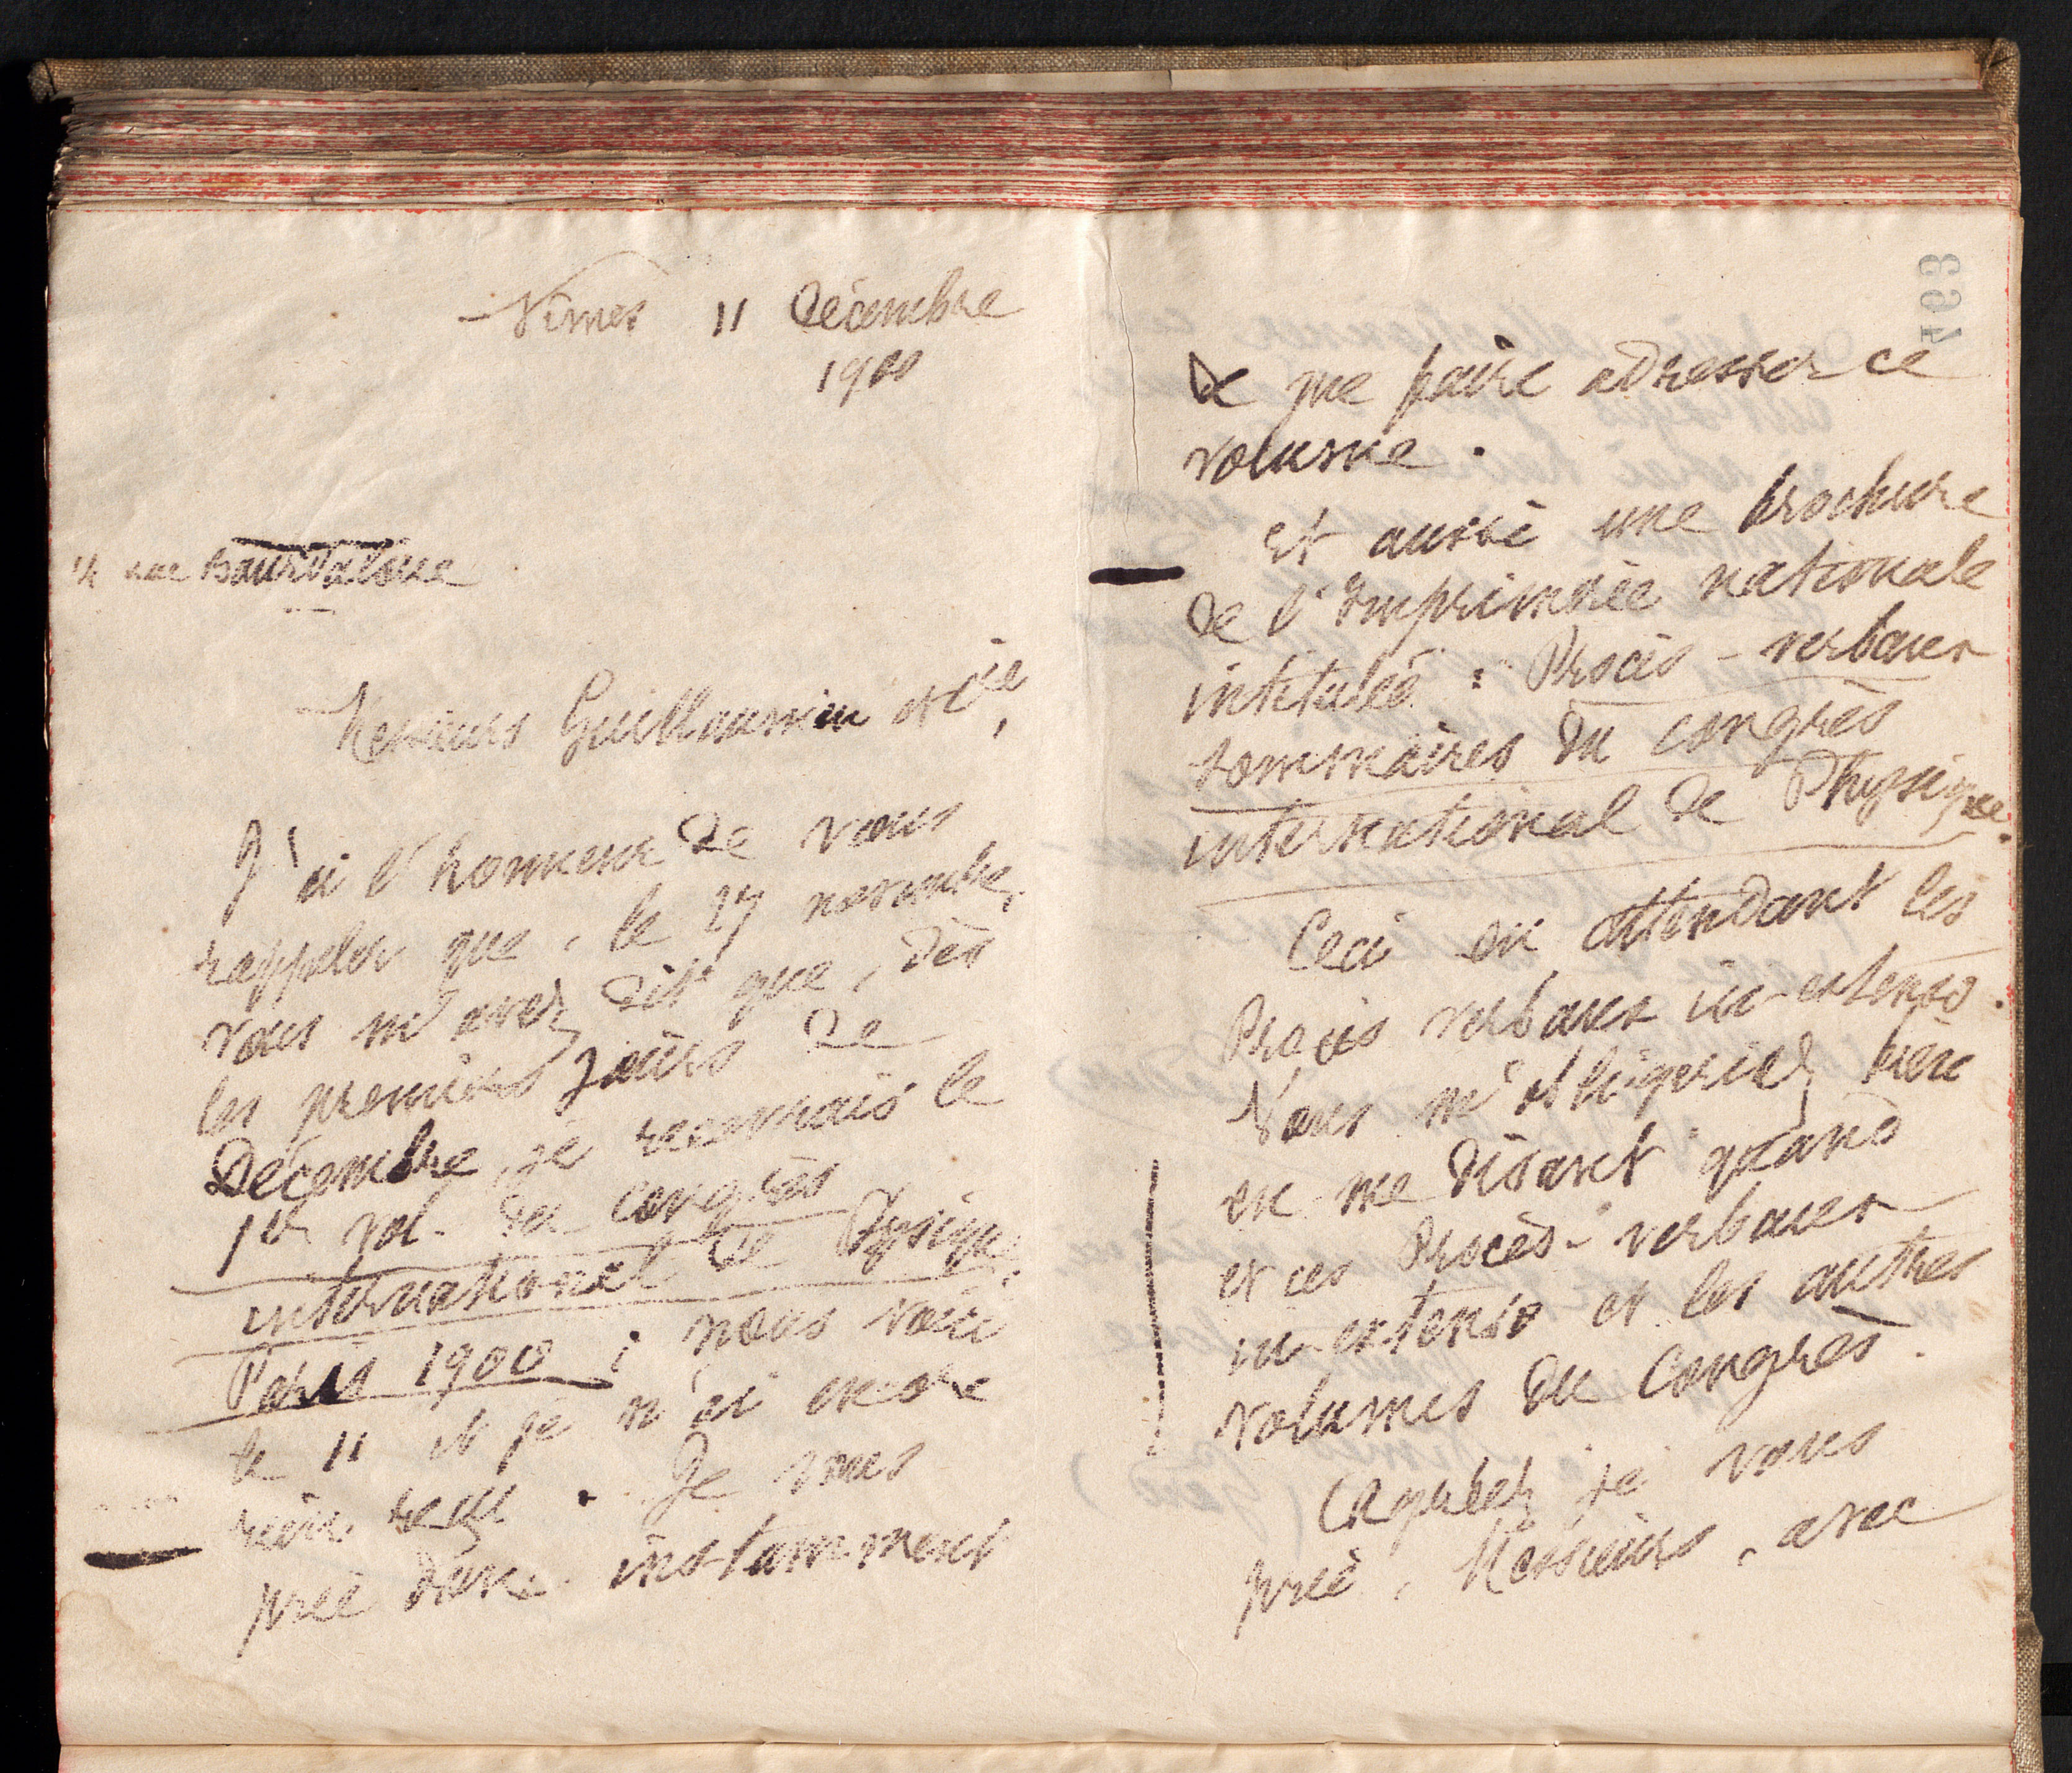 Nîmes 11 Décembre
1900
rue Bourdaloue
Messieurs Guillaumin et Cie,
J'ai l'honneur de vous
rappeler que, le 27 novembre,
vous m'avez dit que, dès
les premiers jours de
Décembre, je recevrais le
1er vol. du congrès
international de Physique,
Paris 1900 ; nous voici
le 11 et je n'ai encore
rien reçu. Je vous
prie donc instamment
de me faire adresser ce
volume.
Et aussi une brochure
de l'Imprimerie nationale
intitulée : Procès-verbaux
sommaires du congrès
international de Physique.
Ceci en attendant les
Procès verbaux in-extenso.
Vous m'obligeriez bien
en me disant quand
et ces Procès-verbaux
in-extenso et les autres
volumes du Congrès.
Agréez je vous
prie, Messieurs, avec